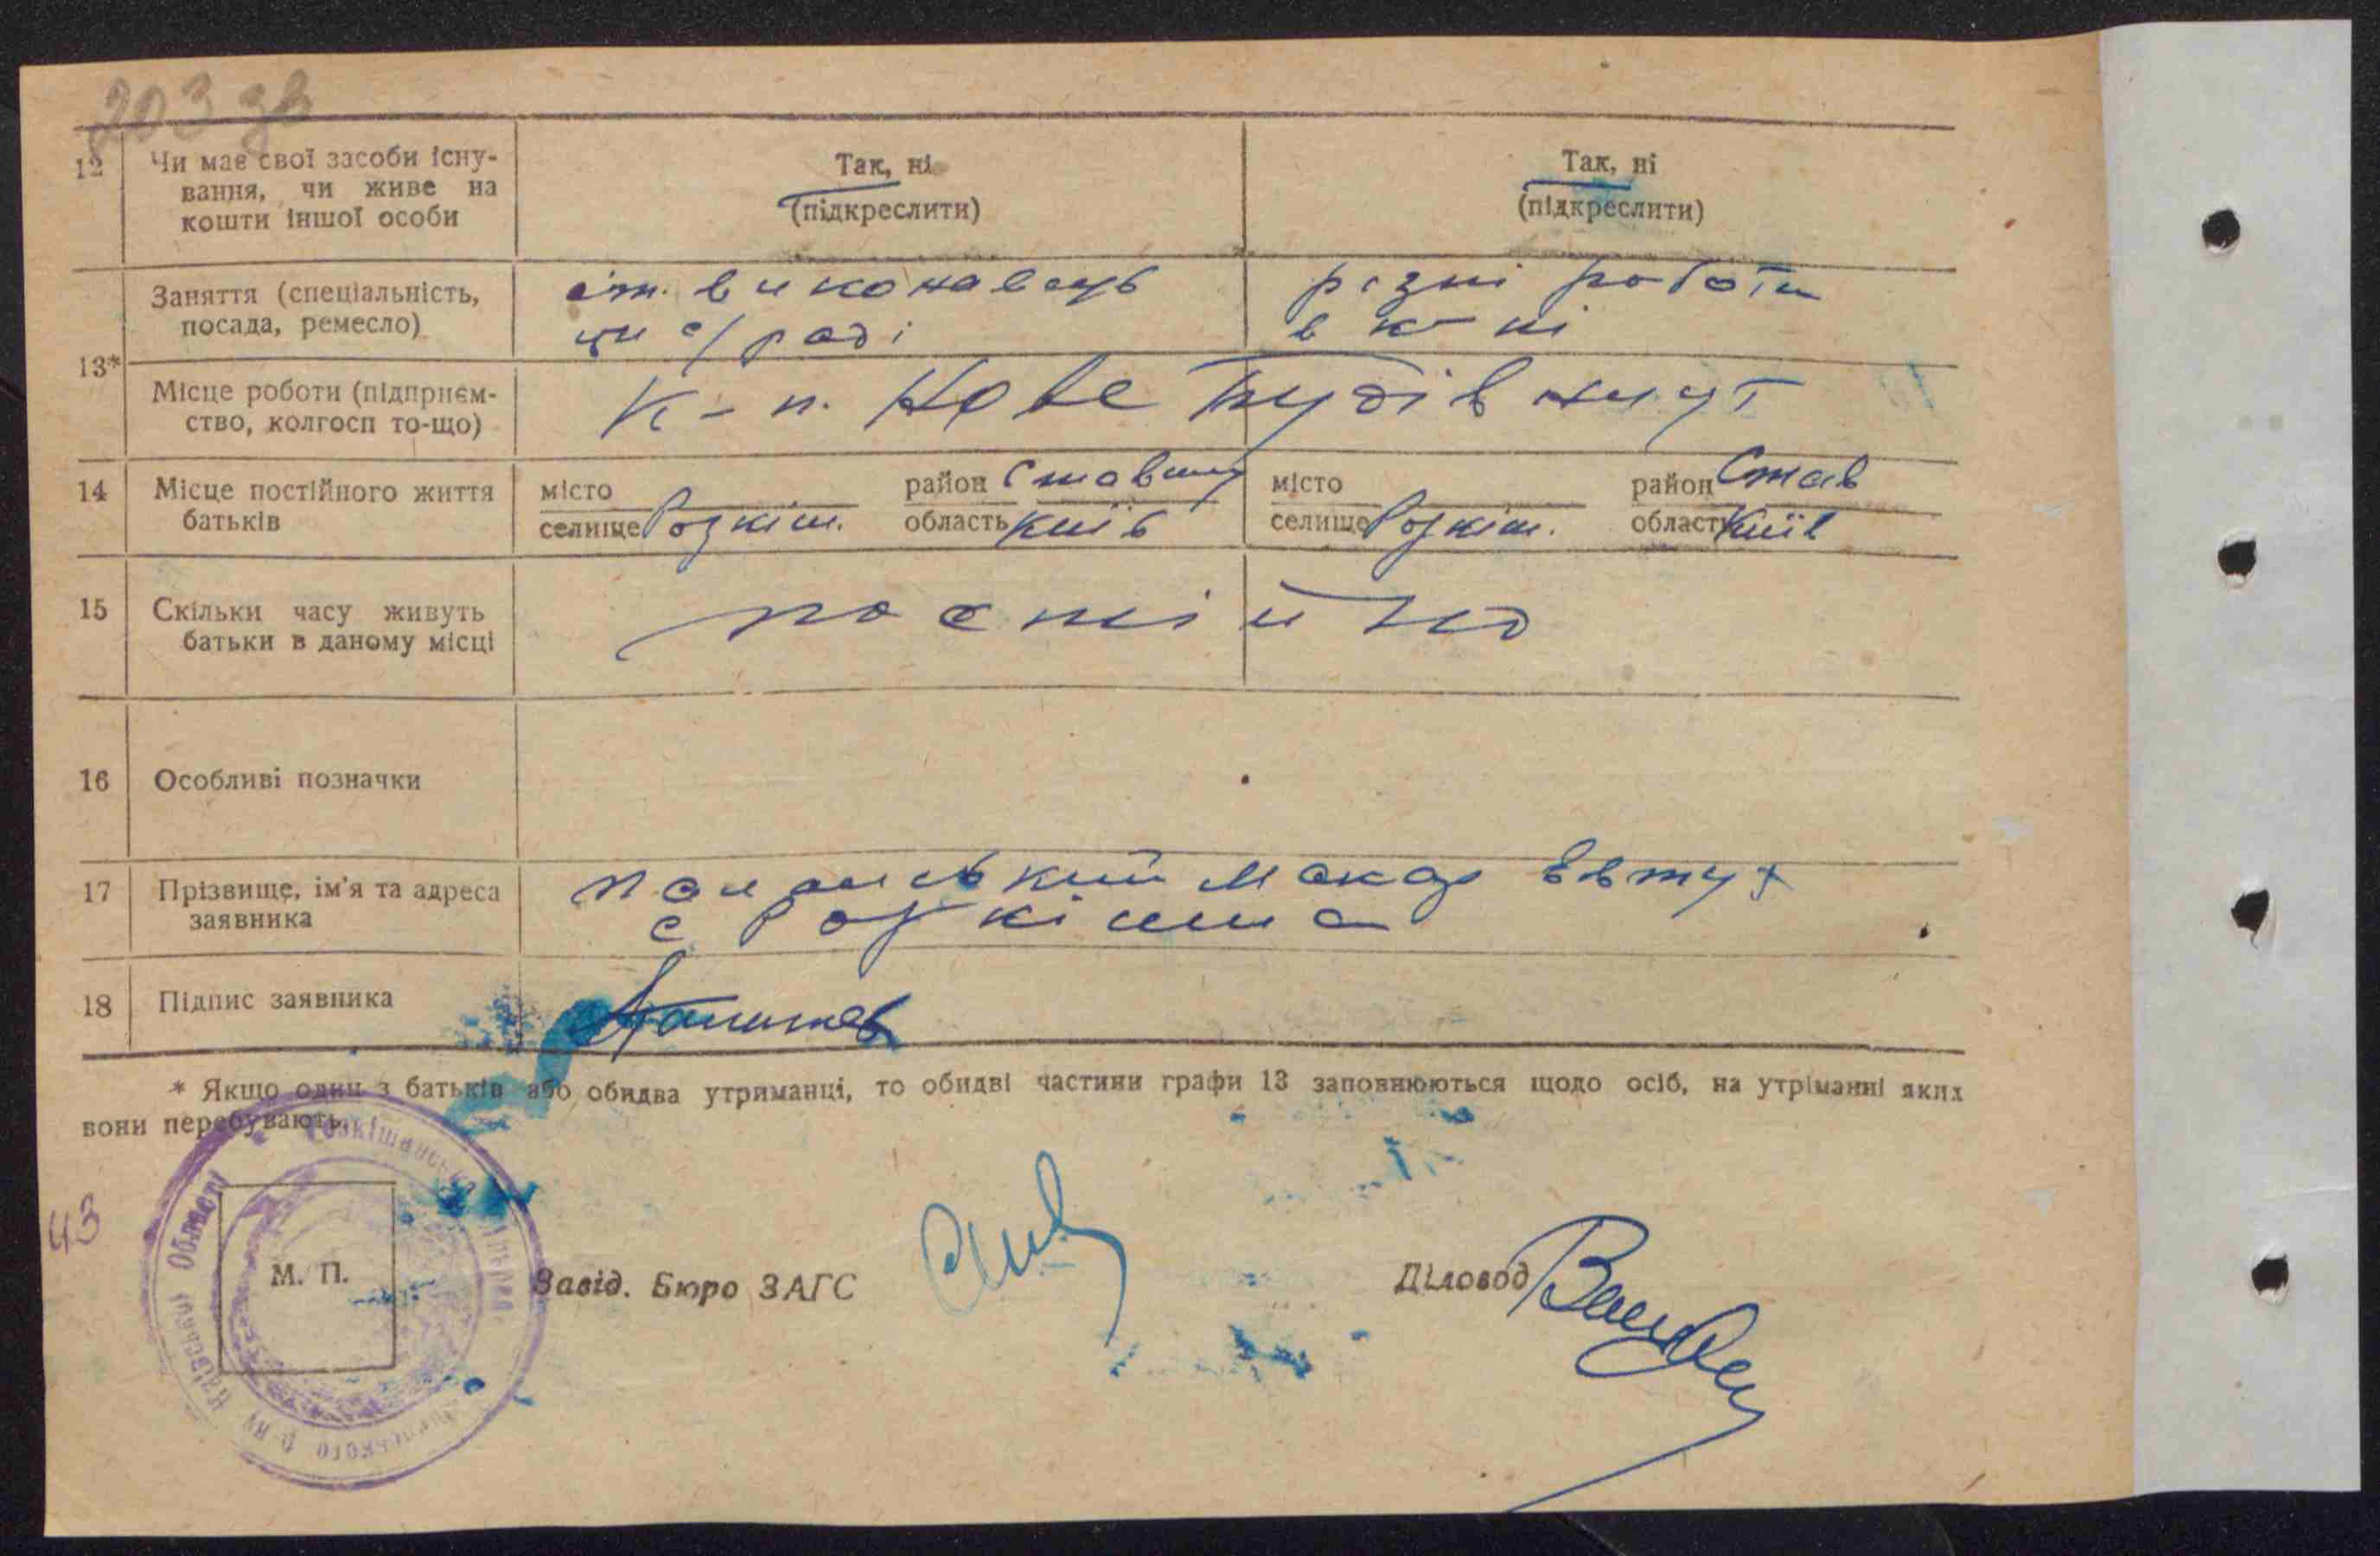 203 зв
12 Чи має свої засоби існу-
вання, чи живе на
кошти іншої особи
Так, ні
(підкреслити)
Так, ні
(підкреслити)
13*
Заняття (спеціальність,
посада, ремесло)
ст. виконавець
при с/раді
різні роботи
в к-пі
Місце роботи (підприєм-
ство, колгосп то-що)
К-п. Нове
14 Місце постійного життя
батьків
місто
селище Розкіш.
район Ставищ
область Київ
місто
селище Розкіш.
район Став
область Київ
15 Скільки часу живуть
батьки в даному місці
постійно
16 Особливі позначки
17 Прізвище, ім'я та адреса
заявника
Макар Євтух
с Розкішна
18 Підпис заявника
* Якщо один з батьків або обидва утриманці, то обидві частини графи 13 заповнюються щодо осіб, на утріманні яких
вони перебувають.
43
М. П.
Київської Області
Завід. Бюро ЗАГС
Діловод